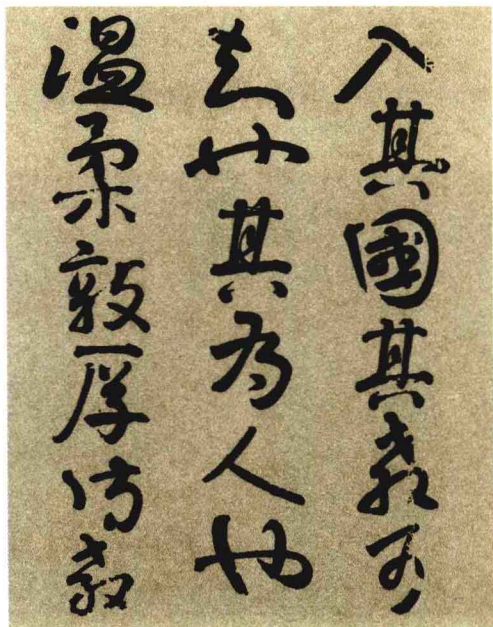 入其國其教可
知也其為人也
温柔敦厚詩教